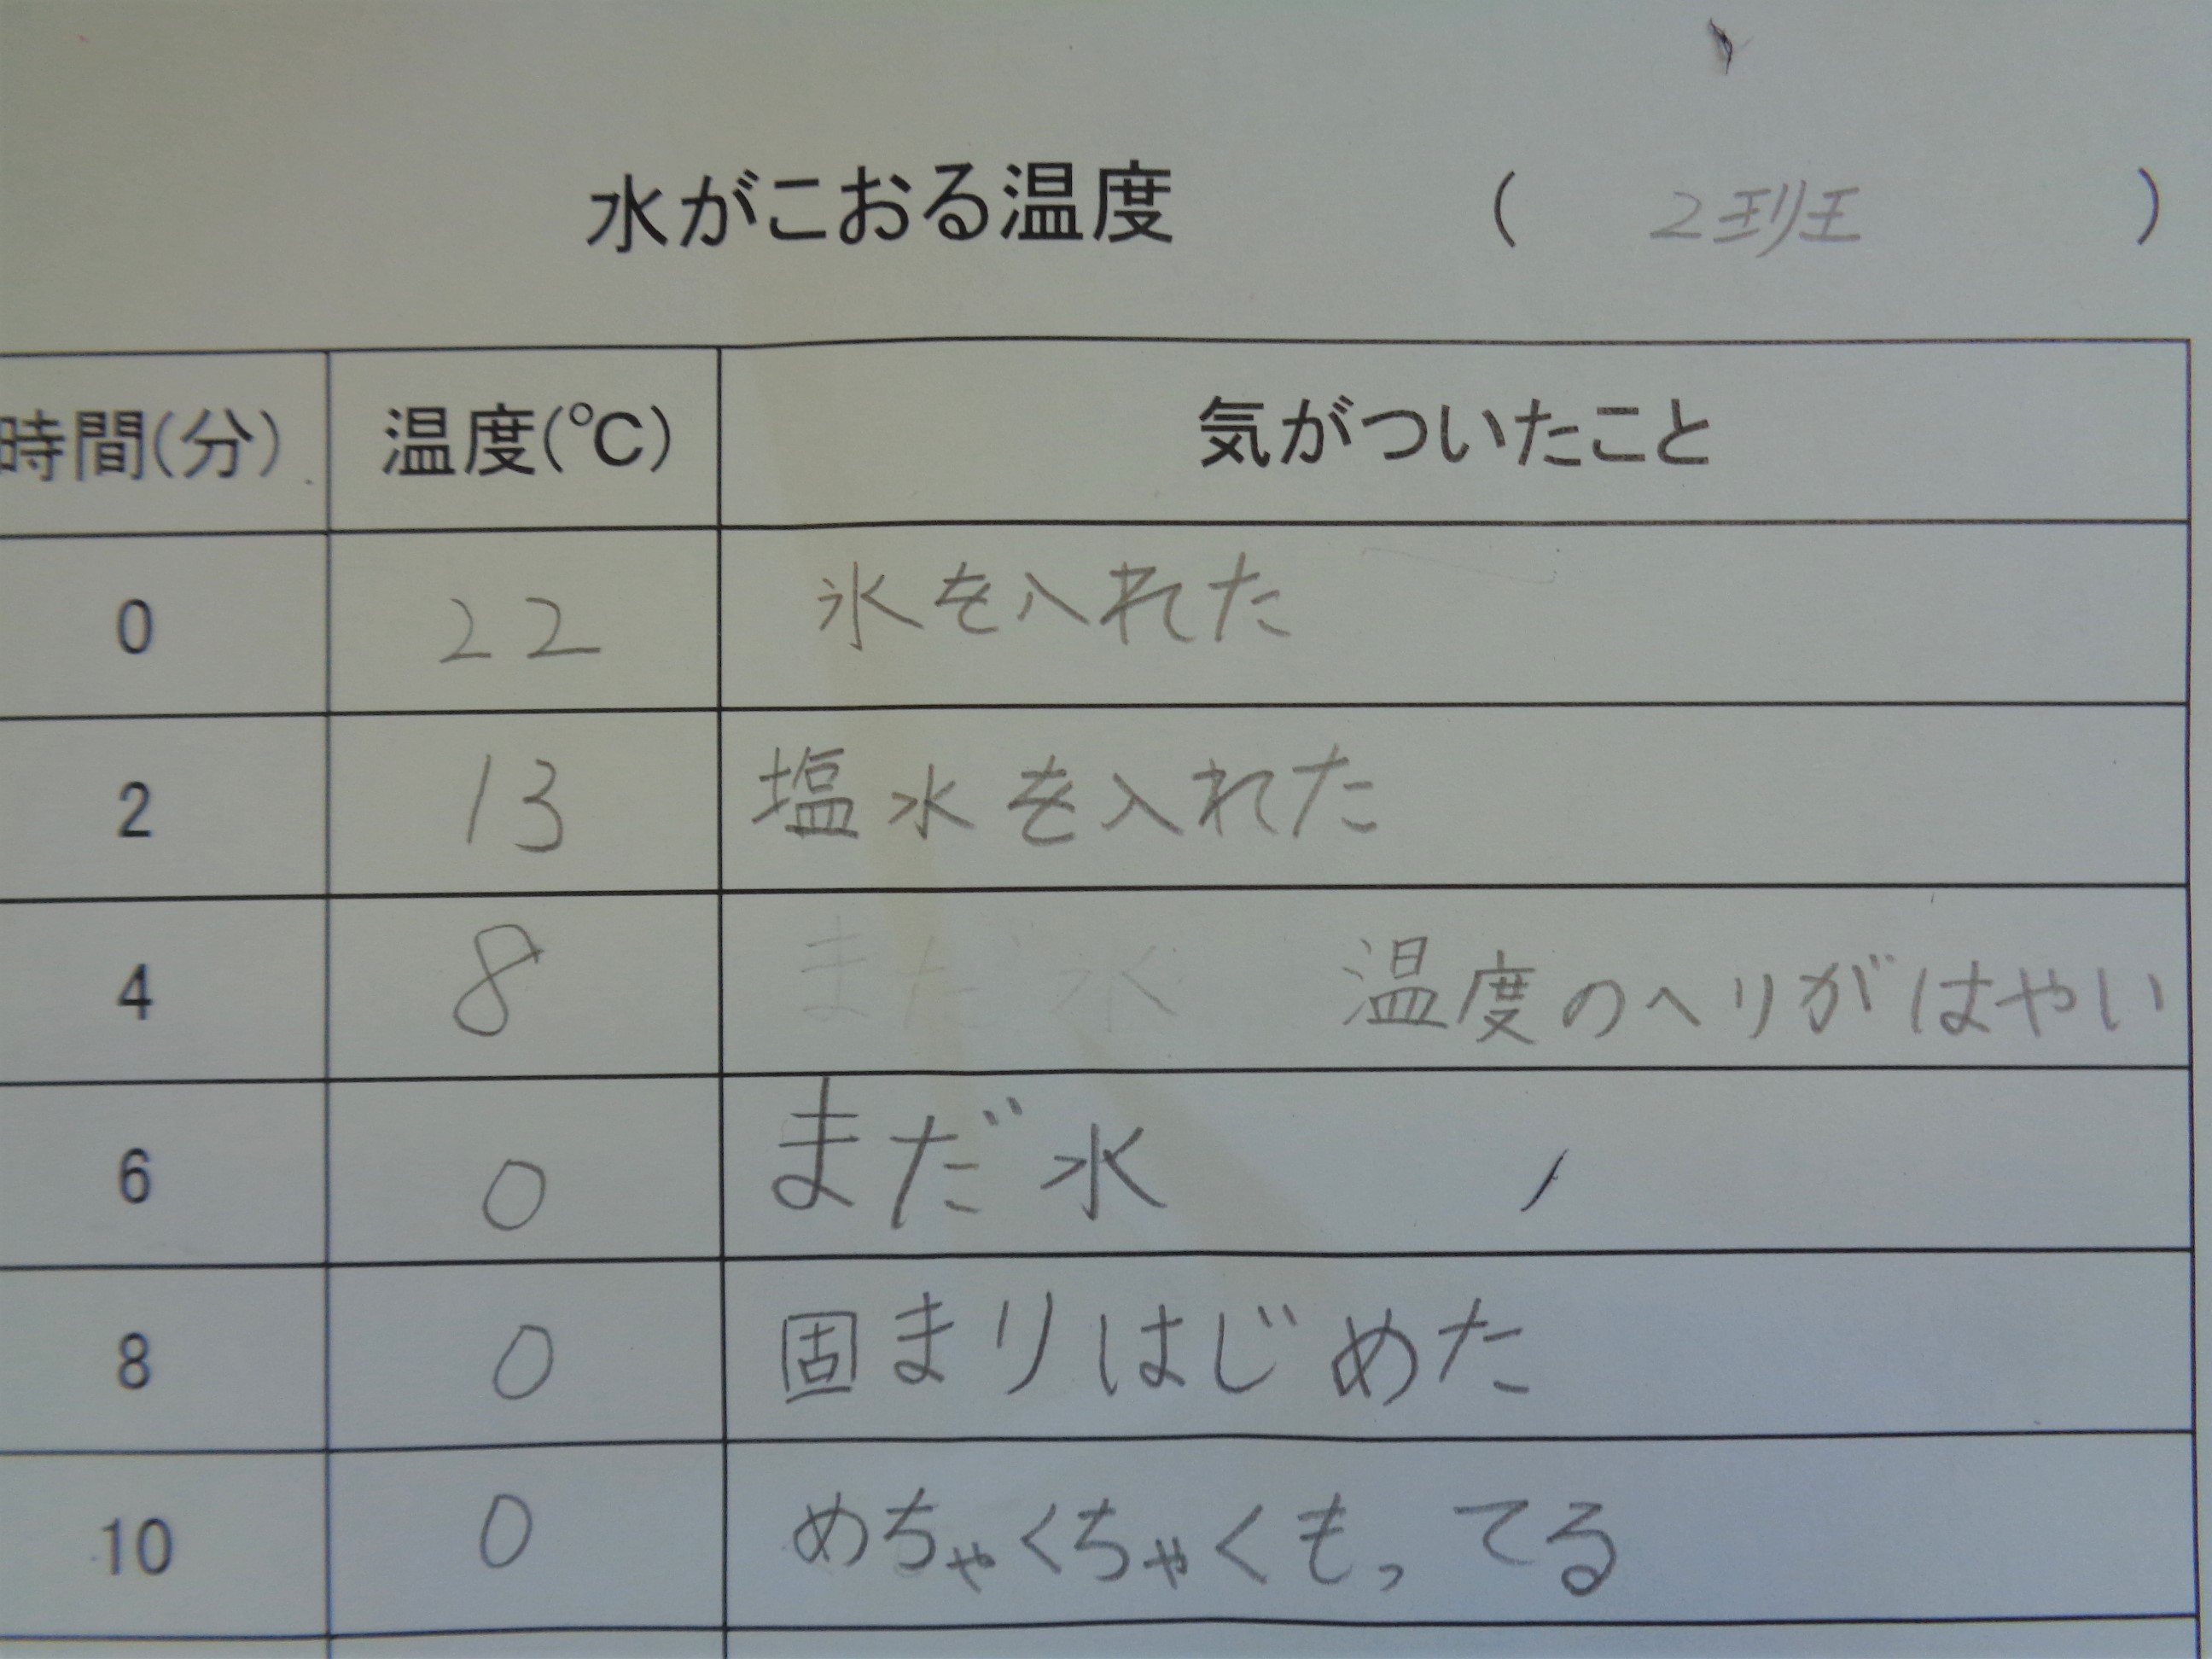 水がこおる温度 ( 2班 )
時間(分) 温度(℃) 気がついたこと
0 22 氷を入れた
2 13 塩水を入れた
4 8 まだ水 温度のへりがはやい
6 0 まだ水
8 0 固まりはじめた
10 0 めちゃくちゃくもってる